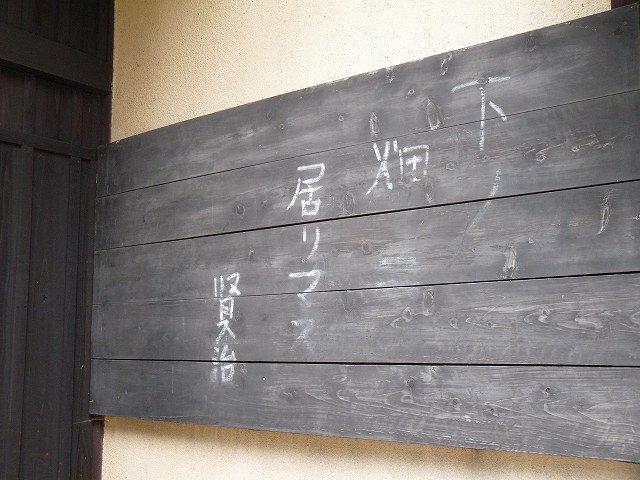 下ノ
畑
居リマス
賢治